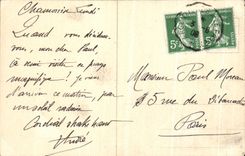 Chamonix Lundi
Quand vous décidez
vous, mon cher Paul,
à venir visiter ce pays
magnifique! Je viens
d'arriver ce matin, par
un soleil radieux
Cordial shake hand
André
5c
Monsieur Paul Moreau
5 rue du
Paris